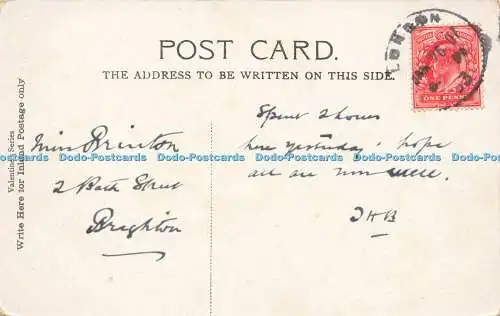 POST CARD.
THE ADDRESS TO BE WRITTEN ON THIS SIDE.
LONDON
ONE PENNY
Valentine's Series
Write Here for Inland Postage only
Miss Brinton
2 Bath Street
Brighton
Spent 2 hours
here yesterday. hope
all are now well.
J H B
Dodo-Postcards Dodo-Postcards Dodo-Postcards Dodo-Postcards Dodo-Postcards